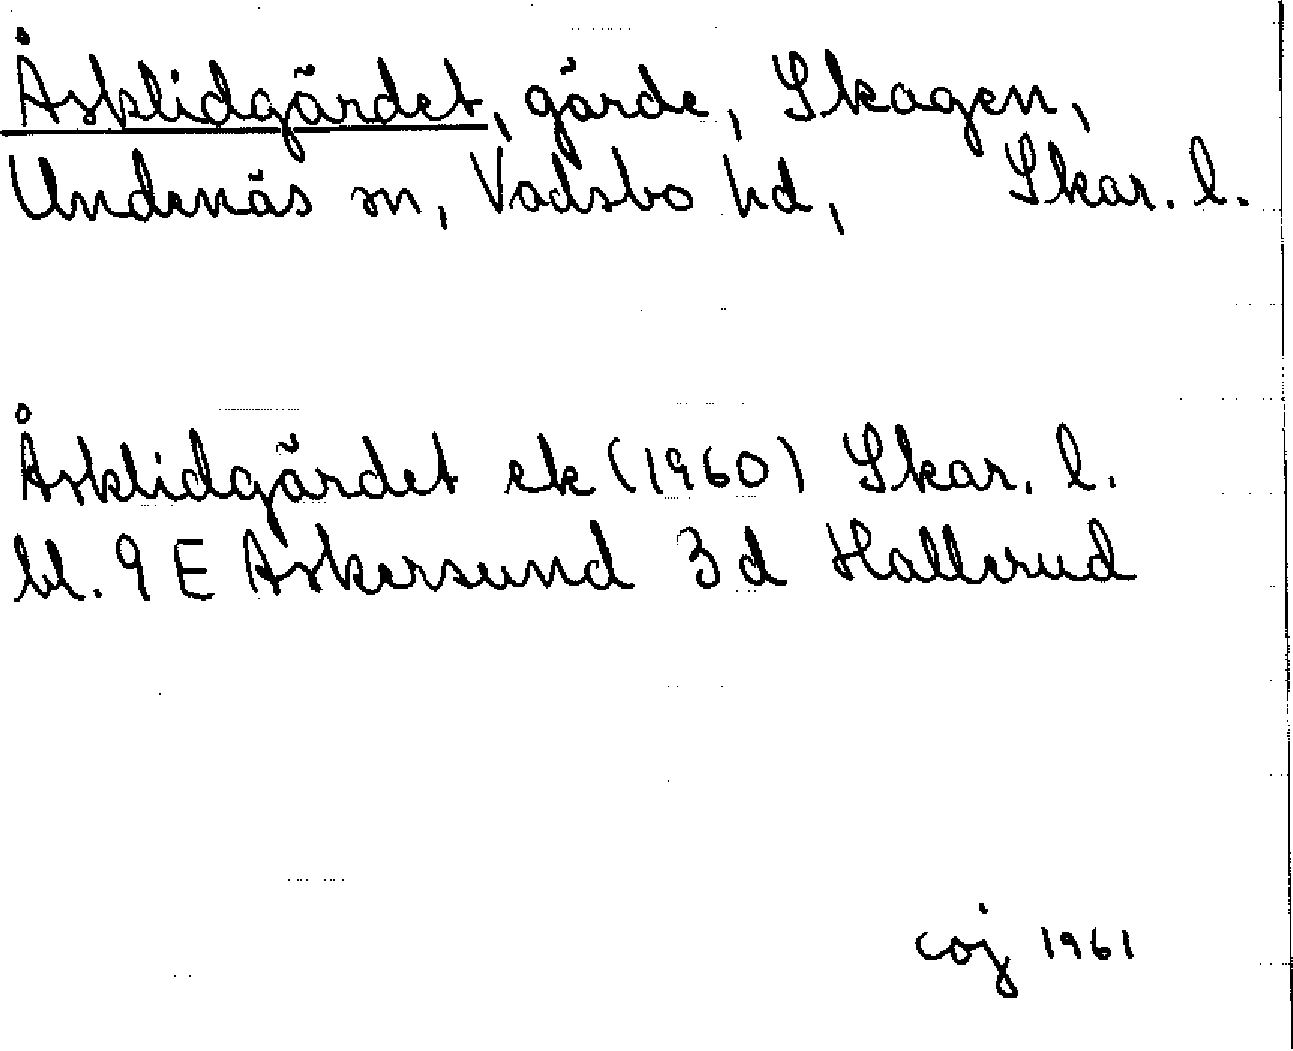 Åsklidgärdet, gärde, Skagen,
Undenäs sn, Vadsbo hd, Skar. l.
Åsklidgärdet ek (1960) Skar. l.
bl. 9 E Askersund 3 d Hallerud
coj 1961